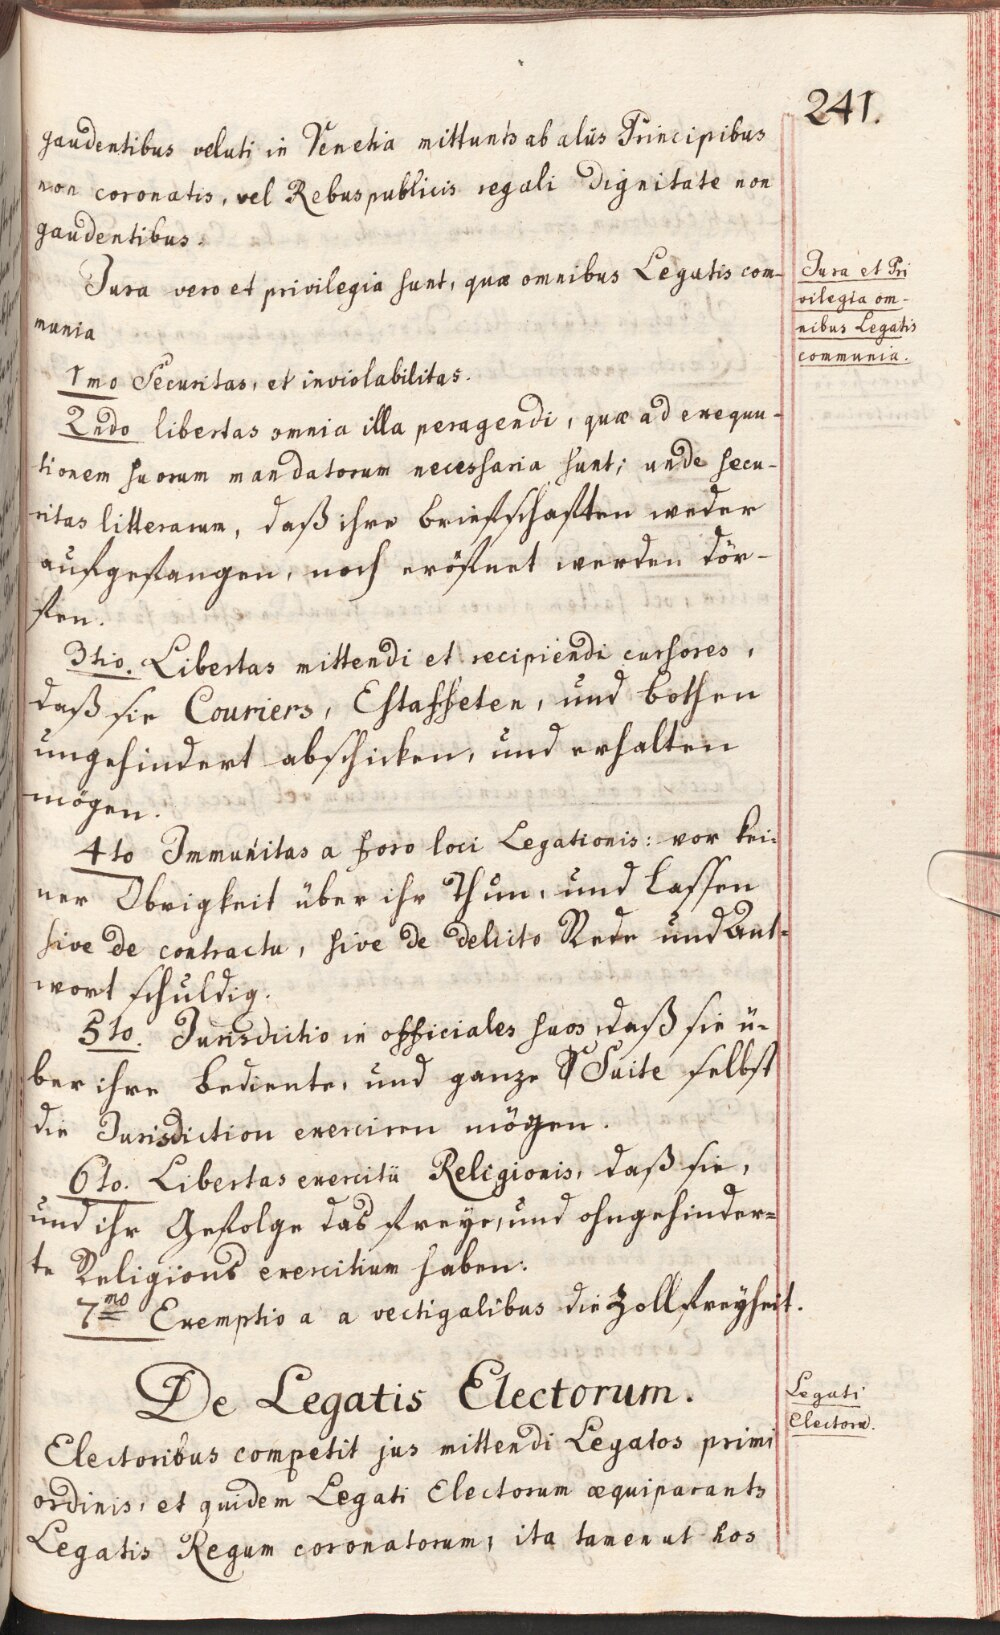 241.
gaudentibus veluti in Venetia mittunts ab alüs Principibus
non coronatis, vel Rebuspublicis regali Dignitate non
gaudentibus.
Jura vero et privilegia sunt, quæ omnibus Legatis com-
munia
Jura et Pri
vilegia om-
nibus Legatis
communia.
1mo Securitas, et inviolabilitas.
2ndo libertas omnia illa peragendi, quæ ad exequu-
tionem suorum mandatorum necessaria sunt; unde secu-
ritas litterarum, daß ihre briefschafften weder
aufgefangen, noch eröfnet werden dör-
ffen.
3tio. Libertas mittendi et recipiendi cursores,
daß sie Couriers, Estaffeten, und bothen
ungehindert abschicken, und erhalten
mögen.
4to Immunitas a foro loci Legationis: vor kei-
ner Obrigkeit über ihr Thun, und lassen
sive de contractu, sive de delicto Rede und Ant-
wort schuldig.
5to. Jurisdictio in officiales suos, daß sie ü-
ber ihre bediente, und ganze Suite selbst
die Jurisdiction exerciren mögen.
6to. Libertas exercitii Religionis, daß sie,
und ihr Gefolge das freye, und ohngehinder-
te Religions exercitium haben.
7mo Exemptio a a vectigalibus die Zollfreyheit.
De Legatis Electorum.
Legati
Electoru.
Electoribus competit jus mittendi Legatos primi
ordinis, et quidem Legati Electorum æquiparants
Legatis Regum coronatorum, ita tamen ut hos